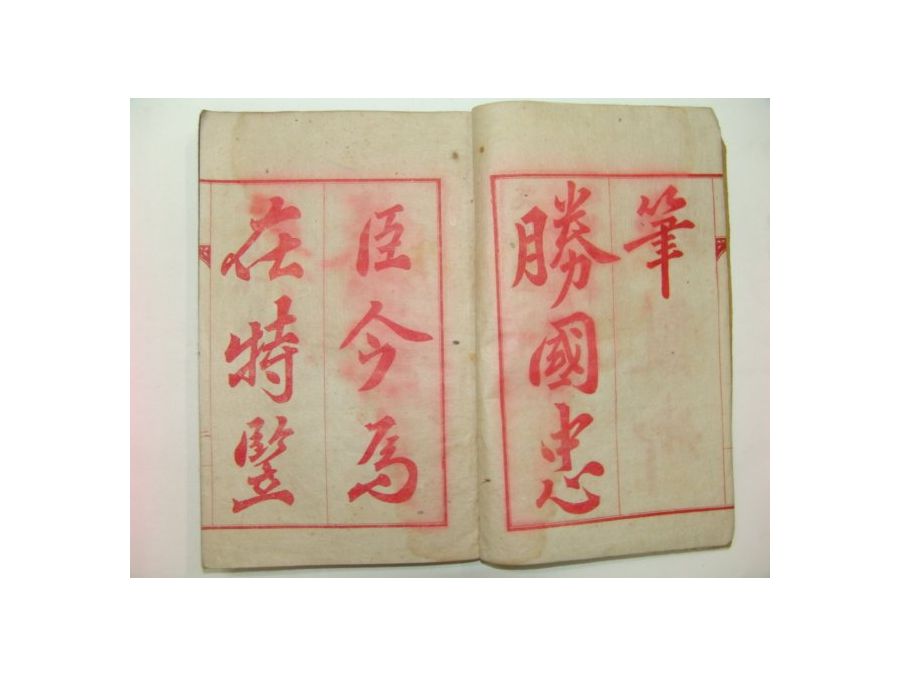 筆
勝國忠
臣今為
在特